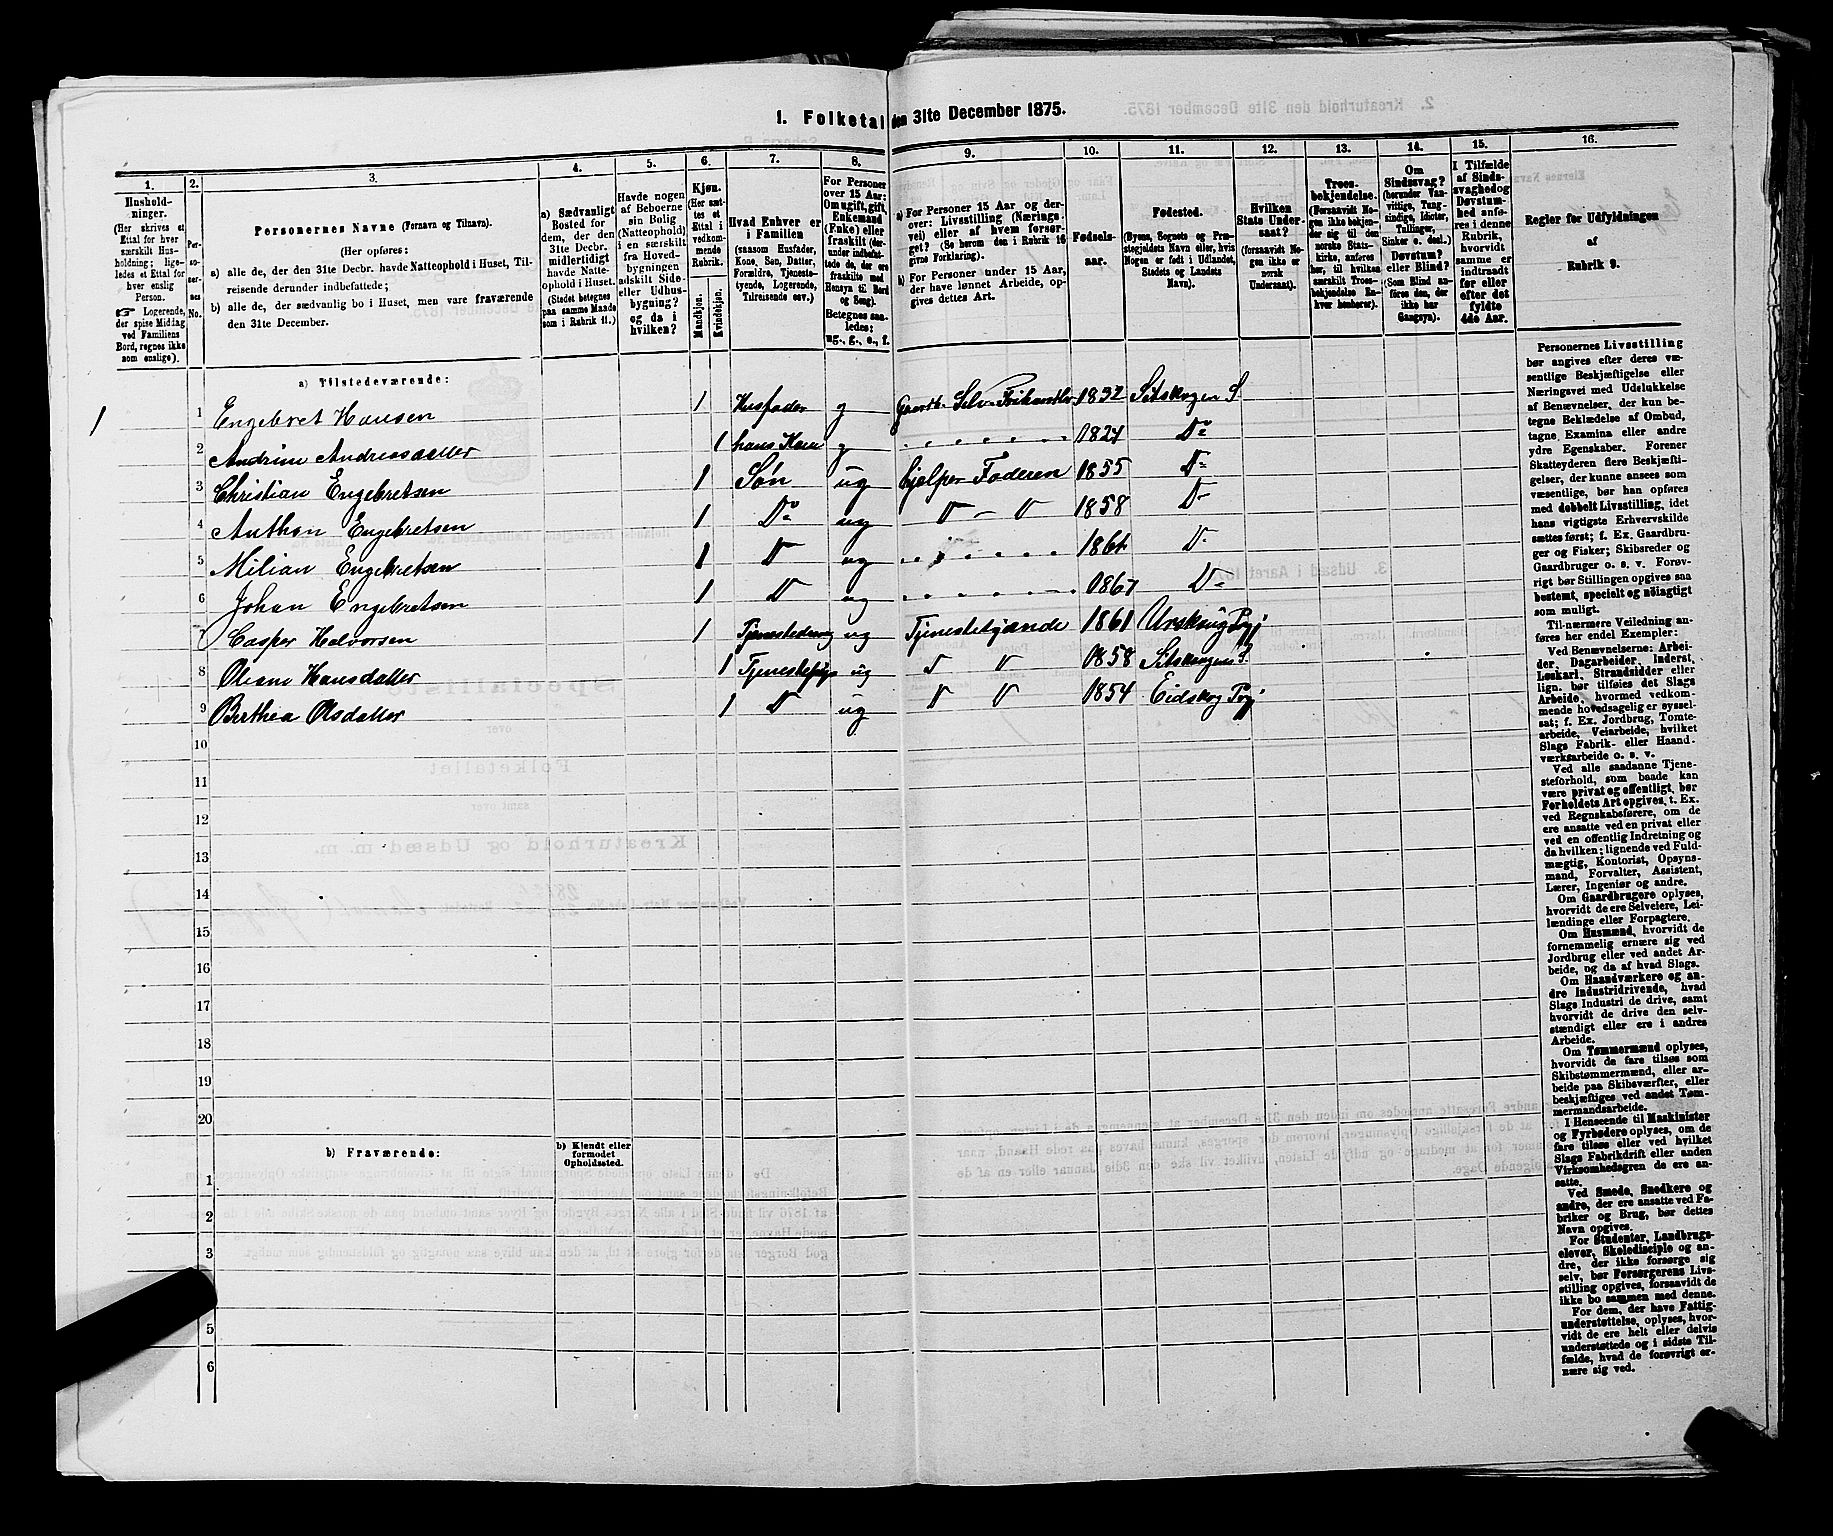 1. Folketal den 31te December 1875.
1.
Hushold-
ninger.
(Her skrives et
Ettal for hver
særskilt Hus-
holdning; lige-
ledes et Ettal for
hver enslig
Person.
☞ Logerende,
der spise Middag
ved Familiens
Bord, regnes ikke
som enslige).
2.
Per-
so-
ner-
nes
No.
3.
Personernes Navne (Fornavn og Tilnavn).
(Her opføres:
a) alle de, der den 31te Decbr. havde Natteophold i Huset, Til-
reisende derunder indbefattede;
b) alle de, der sædvanlig bo i Huset, men vare fraværende
den 31te December.
4.
a) Sædvanligt
Bosted for
dem, der den
31te Decbr.
midlertidigt
havde Natte-
ophold i Huset.
(Stedet betegnes
paa samme Maade
som i Rubrik 11.)
5.
Havde nogen
af Beboerne
sin Bolig
(Natteophold)
i en særskilt
fra Hoved-
bygningen
adskilt Side-
eller Udhus-
bygning?
og da i
hvilken?
6.
Kjøn.
(Her sæt-
tes et
Ettal i
vedkom-
mende
Rubrik.
Mandkjøn.
Kvindekjøn.
7.
Hvad Enhver er
i Familien
(saasom Husfader,
Kone, Søn, Datter,
Forældre, Tjeneste-
tyende, Logerende,
Tilreisende osv.)
8.
For Personer
over 15 Aar:
Om ugift, gift,
Enkemand
(Enke) eller
fraskilt (der-
under indbefat-
tede de, der ere
fraskilte med
Hensyn til Bord
og Seng).
Betegnes saa-
ledes:
ug., g., e., f.
9.
a) For Personer 15 Aar og der-
over: Livsstilling (Nærings-
vei) eller af hvem forsør-
get? (Se herom den i Rubrik 16
givne Forklaring).
b) For Personer under 15 Aar,
der have lønnet Arbeide, op-
gives dettes Art.
10.
Fødsels-
aar.
11.
Fødested.
(Byens, Sognets og Præ-
stegjeldets Navn eller, hvis
Nogen er født i Udlandet,
Stedets og Landets
Navn).
12.
Hvilken
Stats Under-
saat?
(forsaavidt No-
gen ikke er
norsk
Undersaat).
13.
Troes-
bekjendelse.
(Forsaavidt No-
gen ikke bekjen-
der sig til den
norske Stats-
kirke, anføres
her, til hvilken
særskilt Troes-
bekjendelse En-
hver henhører).
14.
Om
Sindssvag?
(herunder Van-
vittige, Tung-
sindige, Idioter,
Tullinger,
Sinker o. desl.)
Døvstum?
eller Blind?
(Som Blind an-
føres den, der
ikke har
Gangsyn).
15.
I Tilfælde
af Sinds-
svaghed og
Døvstum-
hed anfø-
res i denne
Rubrik,
hvorvidt
samme er
indtraadt
før eller
efter det
fyldte
4de Aar.
16.
Regler for Udfyldningen
af
Rubrik 9.
a) Tilstedeværende:
1 1 Engebret Hansen 1 Husfader g Gaardb. Selv 1832 Sitskogen S
2 Andrine Andreasdatter 1 hans Kone g " " " " " " 1824 Do
3 Christian Engebretsen 1 Søn ug hjelper Faderen 1855 Do
4 Anthon Engebretsen 1 Do ug D - D 1858 Do
5 Milian Engebretsen 1 D ug " " " " " 1861 Do
6 Johan Engebretsen 1 D ug " " " " " 1867 Do
7 Casper Halvorsen 1 Tjenestedreng ug Tjenestetyende 1861 Urskoug Pgj
8 Oliane Hansdatter 1 Tjenestepige ug D D 1858 Sitskogens S.
9 Berthea Olsdatter 1 D ug D D 1854 Eidskog Pgj
10
11
12
13
14
15
16
17
18
19
20
b) Fraværende:
b) Kjendt eller
formodet
Opholdssted.
1
2
3
5
6
Personernes Livsstilling
bør angives efter deres væ-
sentlige Beskjæftigelse eller
Næringsvei med Udelukkelse
af Benævnelser, der kun be-
tegne Beklædelse af Ombud,
tagne Examina eller andre
ydre Egenskaber. Forener
Skatteyderen flere Beskjæfti-
gelser, der kunne ansees som
væsentlige, bør han opføres
med dobbelt Livsstilling, idet
hans vigtigste Erhvervskilde
sættes først; f. Ex. Gaardbru-
ger og Fisker; Skibsreder og
Gaardbruger o. s. v. Forøv-
rigt bør Stillingen opgives saa
bestemt, specielt og nøiagtigt
som muligt.
Til nærmere Veiledning an-
føres her endel Exempler:
Ved Benævnelserne: Arbei-
der, Dagarbeider, Inderst,
Løskarl, Strandsidder eller
lign. bør tilføies det Slags
Arbeide, hvormed vedkom-
mende hovedsagelig er syssel-
sat; f. Ex. Jordbrug, Tomte-
arbeide, Veiarbeide, hvilket
Slags Fabrik- eller Haand-
værksarbeide o. s. v.
Ved alle saadanne Tjene-
steforhold, som baade kan
være privat og offentligt, bør
Forholdets Art opgives, t. Ex.
ved Regnskabsførere, om de
ere ansatte ved en privat eller
ved en offentlig Indretning og
da hvilken; lignende ved Fuld-
mægtig, Kontorist, Opsyns-
mand, Forvalter, Assistent,
Lærer, Ingeniør og andre.
Om Gaardbrugere oplyses,
hvorvidt de ere Selveiere, Lei-
lændinge eller Forpagtere.
Om Husmænd, hvorvidt de
fornemmelig ernære sig ved
Jordbrug eller ved andet Ar-
beide, og da af hvad Slags.
Om Haandværkere og an-
dre Industridrivende, hvad
Slags Industri de drive, samt
hvorvidt de drive den selv-
stændigt eller ere i andres
Arbeide.
Om Tømmermænd oplyses,
hvorvidt de fare tilsøs som
Skibstømmermænd, eller ar-
beide paa Skibsværfter, eller
beskjæftiges ved andet Tøm-
mermandsarbeide.
I Henseende til Maskinister
og Fyrbødere oplyses, om de
fare tilsøs eller ved hvilket
Slags Fabrikdrift eller anden
Virksomhedsgren de ere an-
satte.
Ved Smede, Snedkere og
andre, der ere ansatte ved Fa-
briker og Brug, bør dettes
Navn opgives.
For Studenter, Landbrugs-
elever, Skoledisciple og an-
dre, der ikke forsørge sig
selv, bør Forsørgerens Livs-
stilling opgives, forsaavidt de
ikke bo sammen med denne.
For dem, der have Fattig-
understøttelse, oplyses, hvor-
vidt de ere helt eller delvis
understøttede og i sidste Til-
fælde, hvad de forøvrigt er-
nære sig ved.